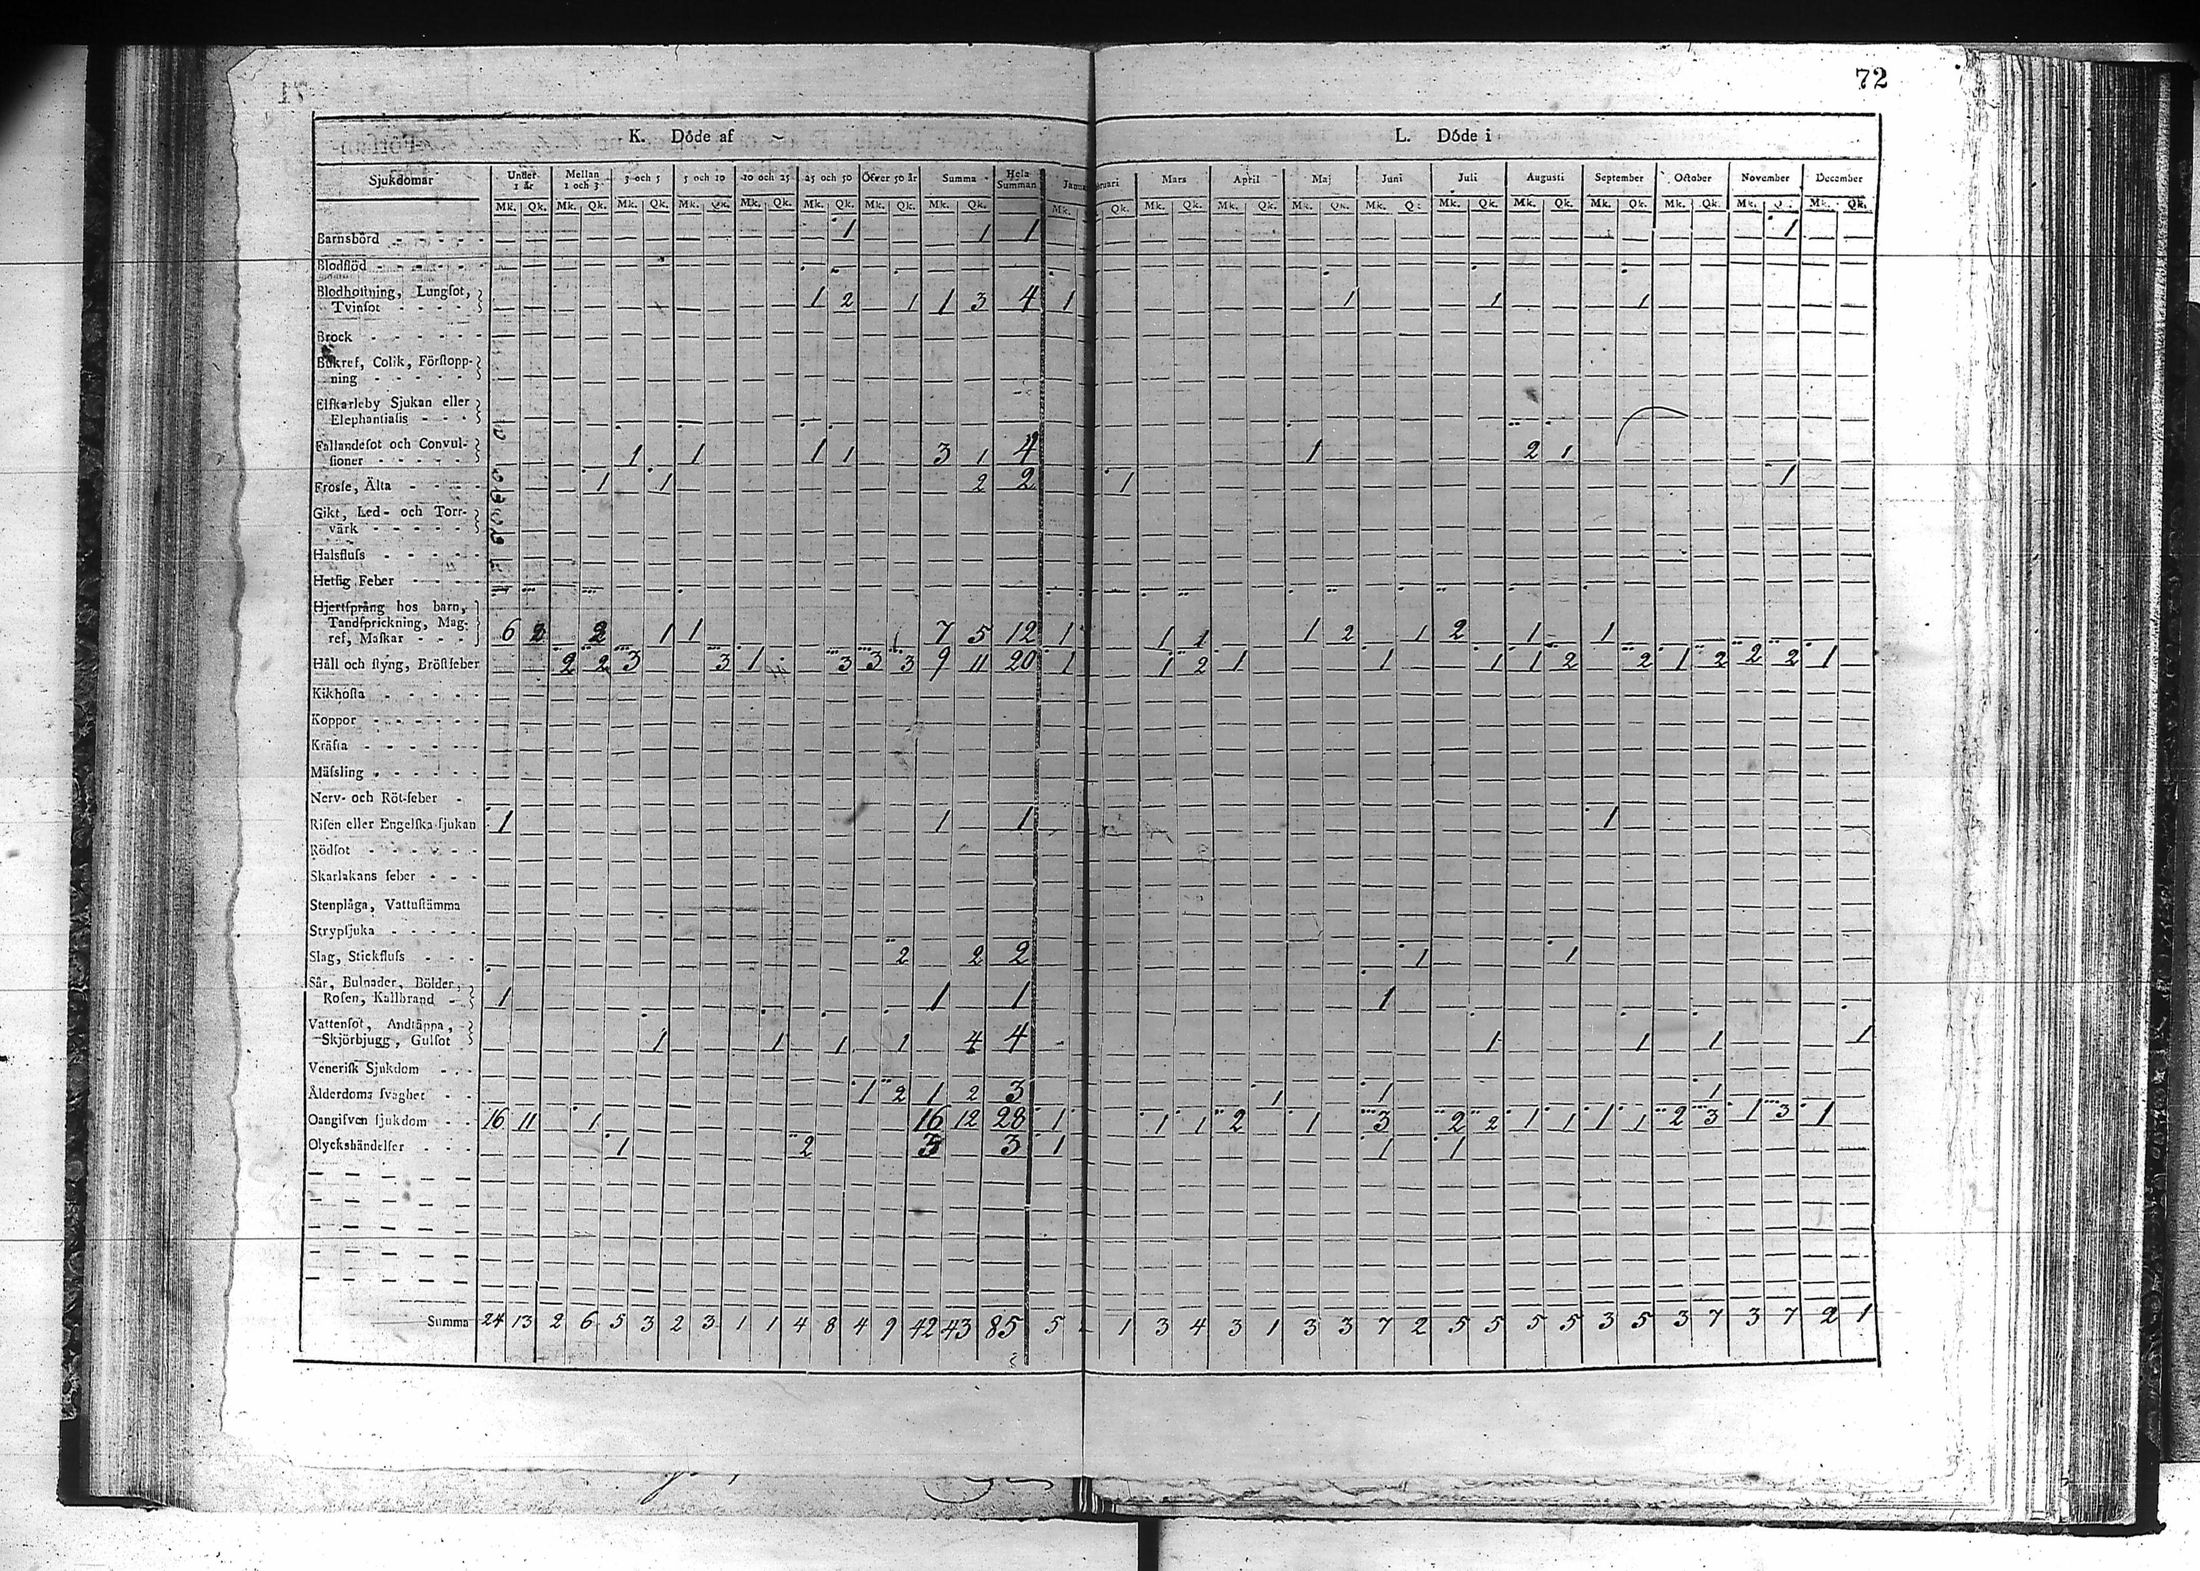 72
K. Döde af
L. Döde i
Sjukdomar Under 1 år Mellan 1 och 3 3 och 5 5 och 10 10 och 25 25 och 50 Öfver 50 år Summa Hela Summan Janua ruari Mars April Maj Juni Juli Augusti September October November December
Mk. Qk. Mk. Qk. Mk. Qk. Mk. Qk. Mk. Qk. Mk. Qk. Mk. Qk. Mk. Qk. Mk. Qk. Mk. Qk. Mk. Qk. Mk. Qk. Mk. Q Mk. Qk. Mk. Qk. Mk. Qk. Mk. Qk. Mk. Q Mk. Qk.
Barnsbörd 1 1 1 1
Blodflöd
Blodhostning, Lungsot,
Tvinsot 1 2 1 1 3 4 1 1 1 1
Brock
Bukref, Colik, Förstopp-
ning
Elfkarleby Sjukan eller
Elephantiasis
Fallandesot och Convul-
sioner 1 1 1 1 3 1 4 1 2 1
Frosse, Älta 1 1 2 2 1 1
Gikt, Led- och Torr-
värk
Halsfluss
Hetsig Feber
Hjertsprång hos barn,
Tandsprickning, Mag-
ref, Maskar 6 2 2 1 1 7 5 12 1 1 1 1 2 1 2 1 1
Håll och styng, Bröstfeber 2 2 3 3 1 3 3 3 9 11 20 1 1 2 1 1 1 1 2 2 1 2 2 2 1
Kikhosta
Koppor
Kräfta
Mässling
Nerv- och Röt-feber
Risen eller Engelska sjukan 1 1 1 1
Rödsot
Skarlakans feber
Stenplåga, Vattustämma
Strypsjuka
Slag, Stickfluss 2 2 2 1 1
Sår, Bulnader, Bölder,
Rosen, Kallbrand 1 1 1 1
Vattensot, Andtäppa,
Skjörbjugg, Gulsot 1 1 1 1 4 4 1 1 1 1
Venerisk Sjukdom
Ålderdoms svaghet 1 2 1 2 3 1 1 1
Oangifven sjukdom 16 11 1 16 12 28 1 1 1 2 1 3 2 2 1 1 1 1 2 3 1 3 1
Olyckshändelser 1 2 3 3 1 1 1
Summa 24 13 2 6 5 3 2 3 1 1 4 8 4 9 42 43 85 5 1 3 4 3 1 3 3 7 2 5 5 5 5 3 5 3 7 3 7 2 1